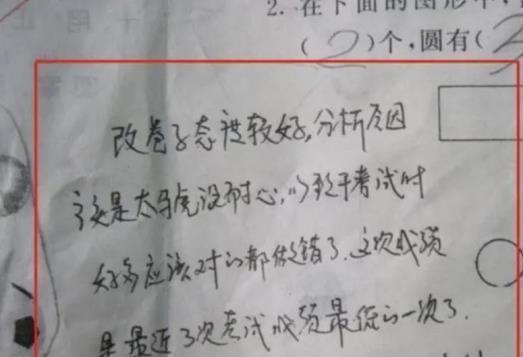 2. 在下面的图形中,
( 2 )个,圆有( 2
改卷子态度较好,分析原因
这是太马虎没耐心,以致于考试时
好多应该对的都做错了.这次成绩
是最近了次考试成绩最低的一次了.